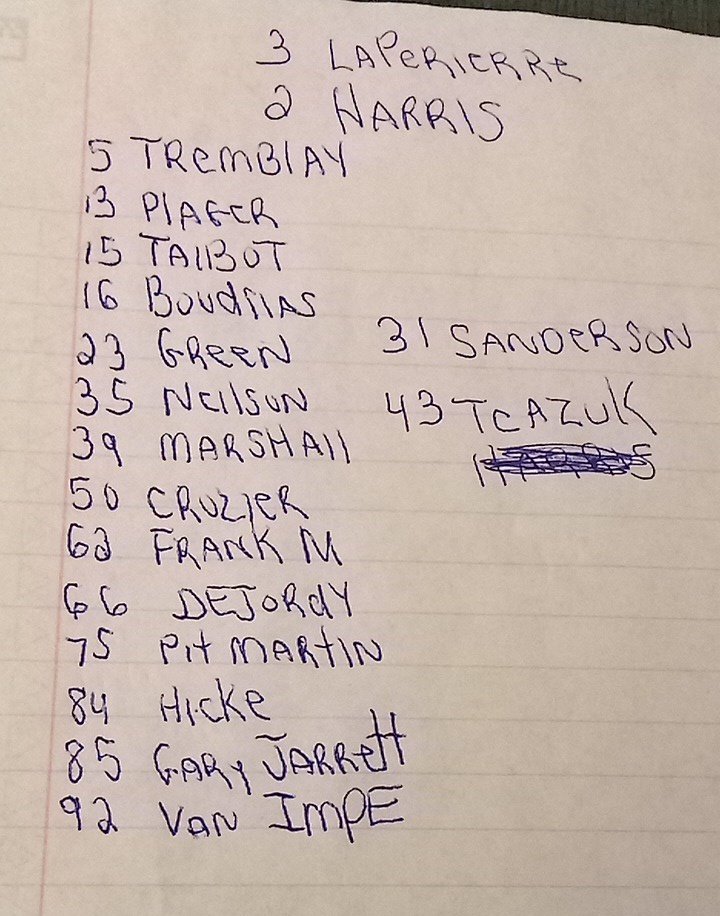 3 LAPERIERRE
2 HARRIS
5 TREMBLAY
13 PLAGER
15 TALBOT
16 BOUDRIAS
23 GREEN
35 NEILSON
39 MARSHALL
50 CROZIER
62 FRANK M
66 DEJORDY
75 PIT MARTIN
84 HICKE
85 GARY JARRETT
92 VAN IMPE
31 SANDERSON
43 TCAZUK